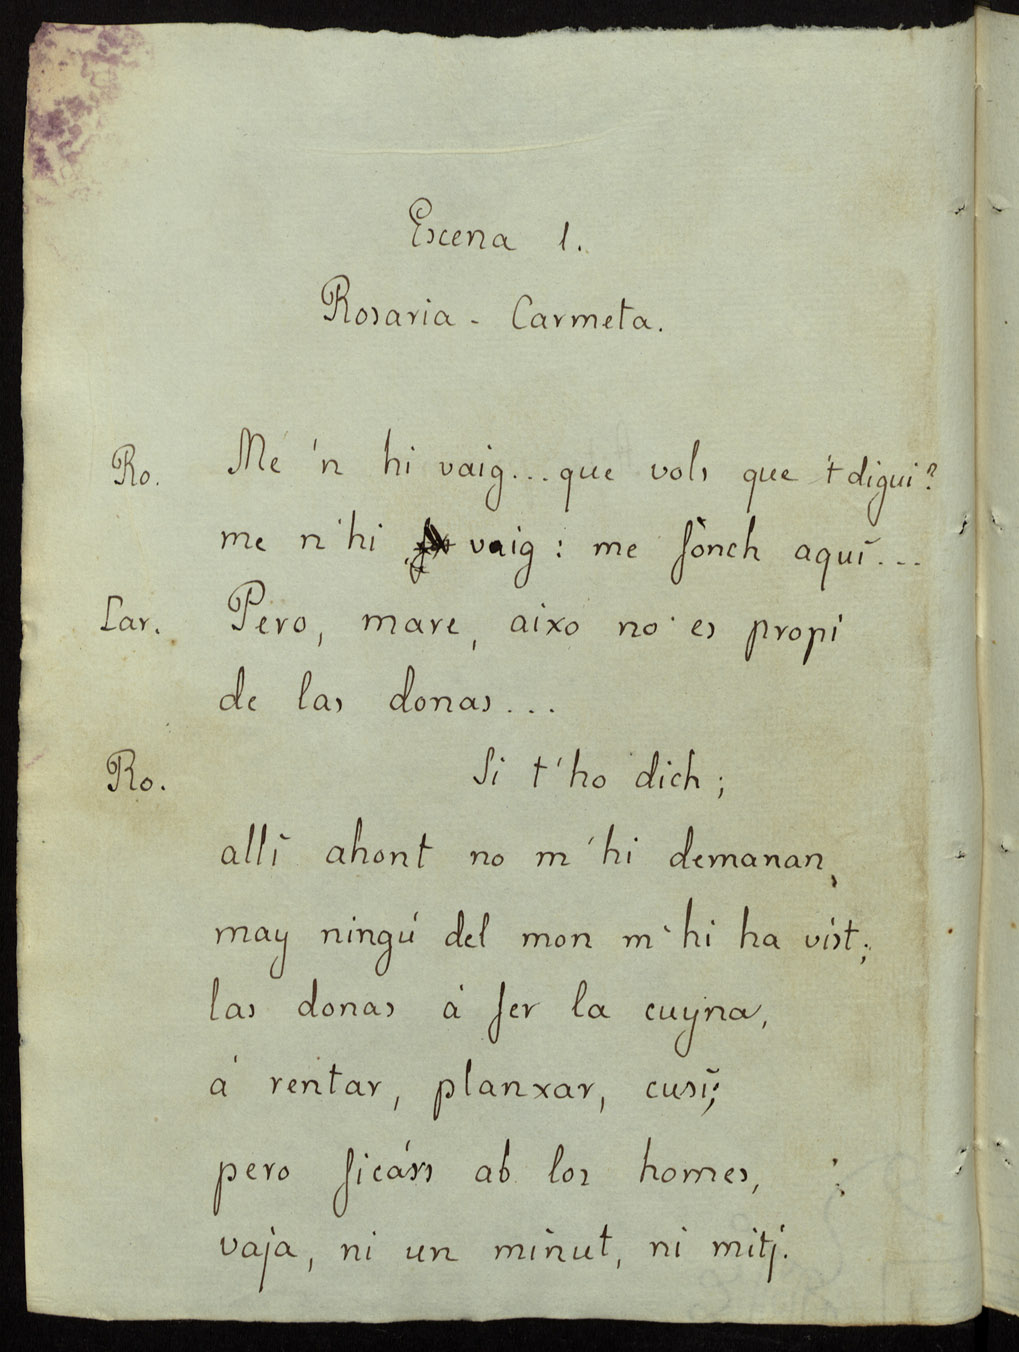 Escena 1.
Rosaria - Carmeta.
Ro. Me 'n hi vaig... que vols que 't digui?
me n'hi vaig: me fònch aquí...
Car. Pero, mare, aixo no es propi
de las donas...
Ro. Si t'ho dich;
allí ahont no m'hi demanan,
may ningú del mon m'hi ha vist;
las donas á fer la cuyna,
á rentar, planxar, cusí;
pero ficárs ab los homes,
vaja, ni un minut, ni mitj.